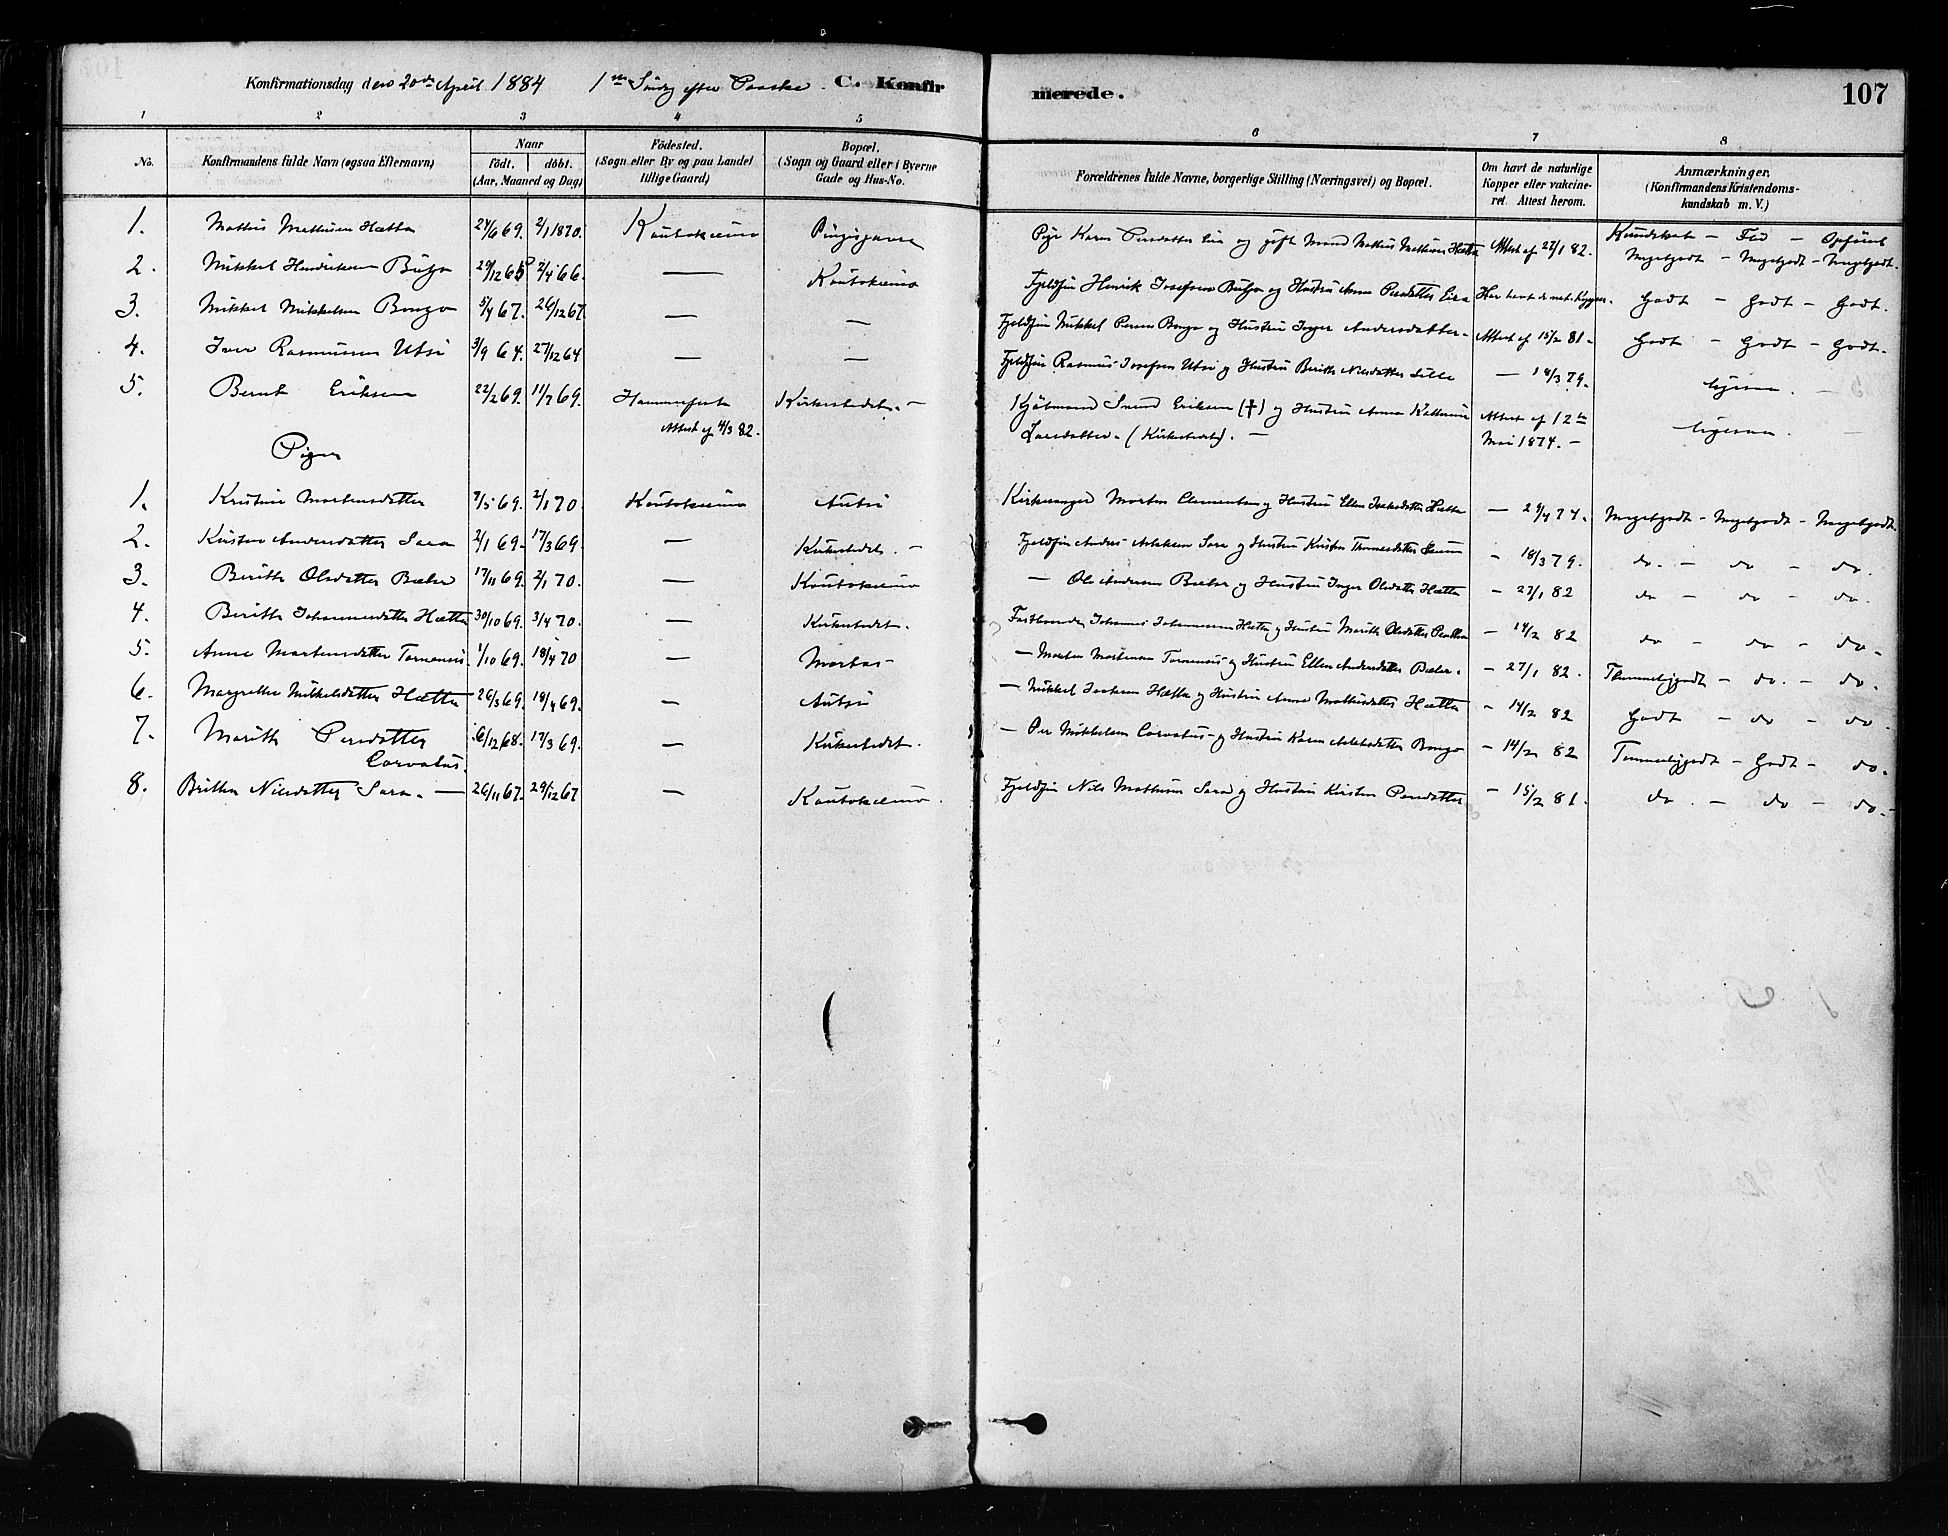 Konfirmationsdag den 20de April 1884 1ste Søndag efter Paaske. C. Konfirmerede. 107
1 2 3 4 5 6 7 8
No. Konfirmandens fulde Navn (ogsaa Efternavn) Naar födt. döbt. (Aar, Maaned og Dag) Födested. (Sogn eller By og paa Landet tillige Gaard) Bopæl. (Sogn og Gaard eller i Byerne Gade og Hus-No. Forældrenes fulde Navne, borgerlige Stilling (Næringsvei) og Bopæl. Om havt de naturlige Kopper eller vakcineret. Attest herom. Anmærkninger. (Konfirmandens Kristendomskundskab m. V.)
Kundskab — Flid — Opførsel
1. Mathis Mathisen Hætta 24/6 69. 2/1 1870. Koutokeino Pige Karen Persdatter Eira og gift Mand Mathis Mathisen Hætta Attest af 27/1 82. Megetgodt — Megetgodt — Megetgodt.
2. Mikkel Henriksen Buljo 29/12 65 2/4 66. — Koutokeino Fjeldfin Henrik Josefsen Buljo og Hustru Anne Persdatter Eira Har havt de nat. Kopper. Godt — Godt — Godt.
3. Mikkel Mikkelsen Bongo 5/4 67. 26/12 67. — — Fjeldfin Mikkel Persen Bongo og Hustru Inger Andersdatter — Attest af 15/2 81 — Godt — Godt — Godt.
4. Iver Rasmussen Utsi 3/9 64. 27/12 64 — — Fjeldfin Rasmus Josefsen Utsi og Hustru Berith Nilsdatter — 14/3 79. ligesaa. —
5. Bernt Eriksen 22/2 69. 11/7 69. Hammerfest Attest af 4/3 82. Kirkestedet. — Eriksen (†) og Hustru Anna Kathrine Larsdatter. (Kirkestedet). — Attest af 12te Mai 1874. — ligesaa. —
Piger
1. Kristine Mortensdatter 7/5 69. 2/1 70. Koutokeino Autsi Kirkesanger Morten Clementsen og Hustru Ellen Isaksdatter Hætta — 29/4 74. Megetgodt — Megetgodt — Megetgodt.
2. Kirsten Andersdatter Sara 2/1 69. 17/3 69. — Kirkestedet. — Fjeldfin Anders Aslaksen Sara og Hustru Kirsten Thomasdatter — 18/3 79. do. — do — do.
3. Berith Olsdatter Bæhr 17/11 69. 2/1 70. — Koutokeino — Ole Andersen Bæhr og Hustru Inger Olsdatter Hætta — 27/1 82 do — do — do.
4. Berith Johannesdatter Hætta 30/10 69. 3/4 70. — Kirkestedet. Fastboende Johannes Johannesen Hætta og Hustru Marith Olsdatter — 14/2 82 do — do — do.
5. Anne Mortensdatter Tornensis 1/10 69. 18/4 70 — — Morten Mortensen Tornensis og Hustru Ellen Andersdatter Bæhr. — 27/1 82. Temmeliggodt — do. — do.
6. Margrethe Mikkelsdatter Hætta 26/3 69. 18/4 69. — Autsi — Mikkel Isaksen Hætta og Hustru Anne Mathisdatter Hætta — 14/2 82 Godt — do — do.
7. Marith Persdatter Corvatus. 6/12 68. 17/3 69. — Kirkestedet. — Per Mikkelsen Corvatus og Hustru Karen Aslaksdatter Bongo — 14/2 82 Temmeliggodt — Godt — do.
8. Britha Nilsdatter Sara. — 26/11 67. 29/12 67 — Koutokeino. Fjeldfin Nils Mathisen Sara og Hustru Kirsten Persdatter — 15/2 81. do. — do — do.